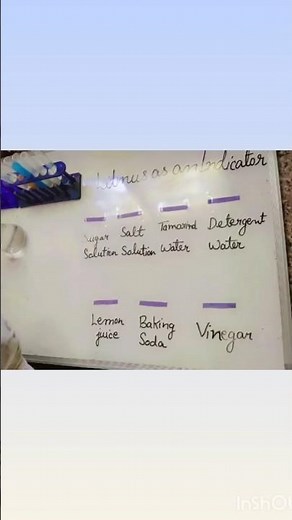 Litmus as an Indicator
Sugar Salt Tamarind Detergent
Solution Solution Water Water
Lemon Baking Vinegar
juice Soda
InShO